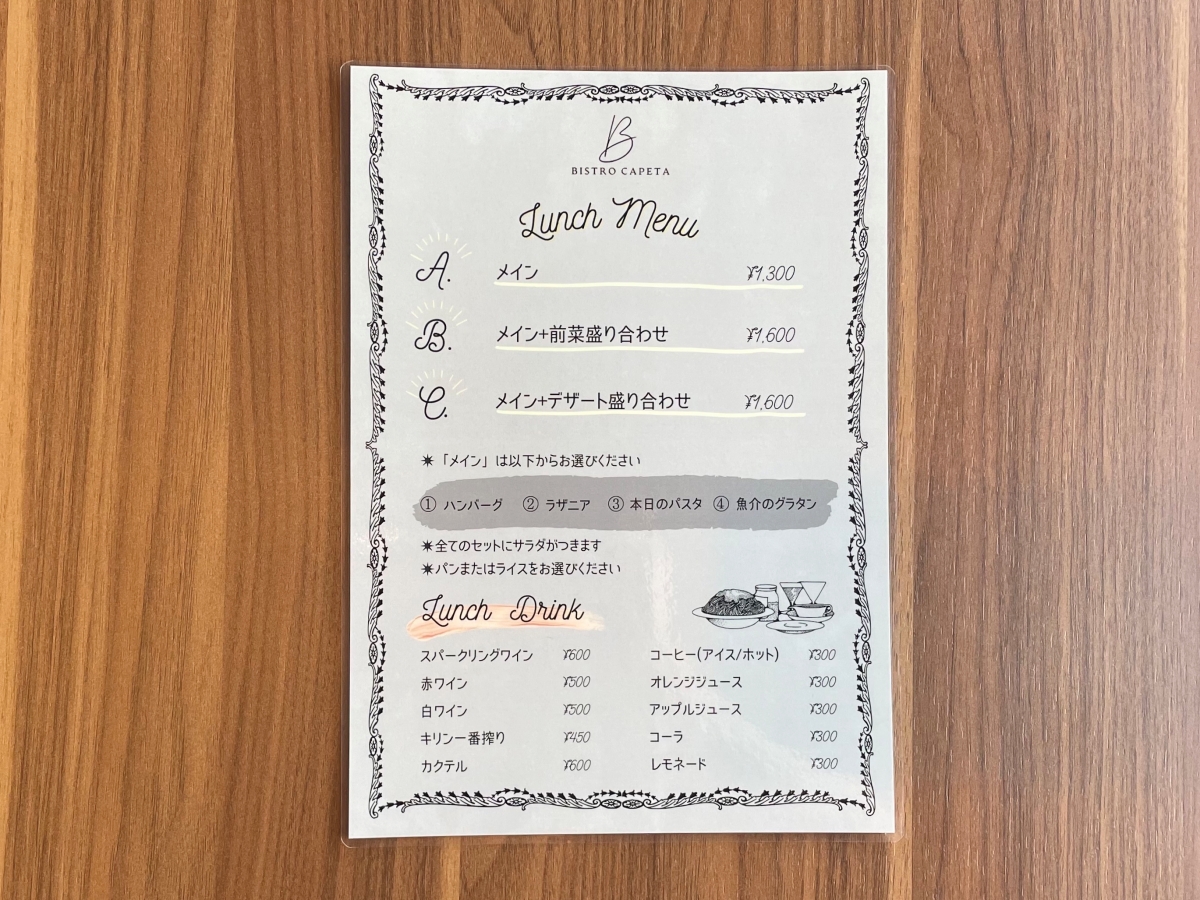 B
BISTRO CAPETA
Lunch Menu
A. メイン ¥1,300
B. メイン+前菜盛り合わせ ¥1,600
C. メイン+デザート盛り合わせ ¥1,600
✴「メイン」は以下からお選びください
① ハンバーグ ② ラザニア ③ 本日のパスタ ④ 魚介のグラタン
✴全てのセットにサラダがつきます
✴パンまたはライスをお選びください
Lunch Drink
スパークリングワイン ¥600
赤ワイン ¥500
白ワイン ¥500
キリン一番搾り ¥450
カクテル ¥600
コーヒー(アイス/ホット) ¥300
オレンジジュース ¥300
アップルジュース ¥300
コーラ ¥300
レモネード ¥300